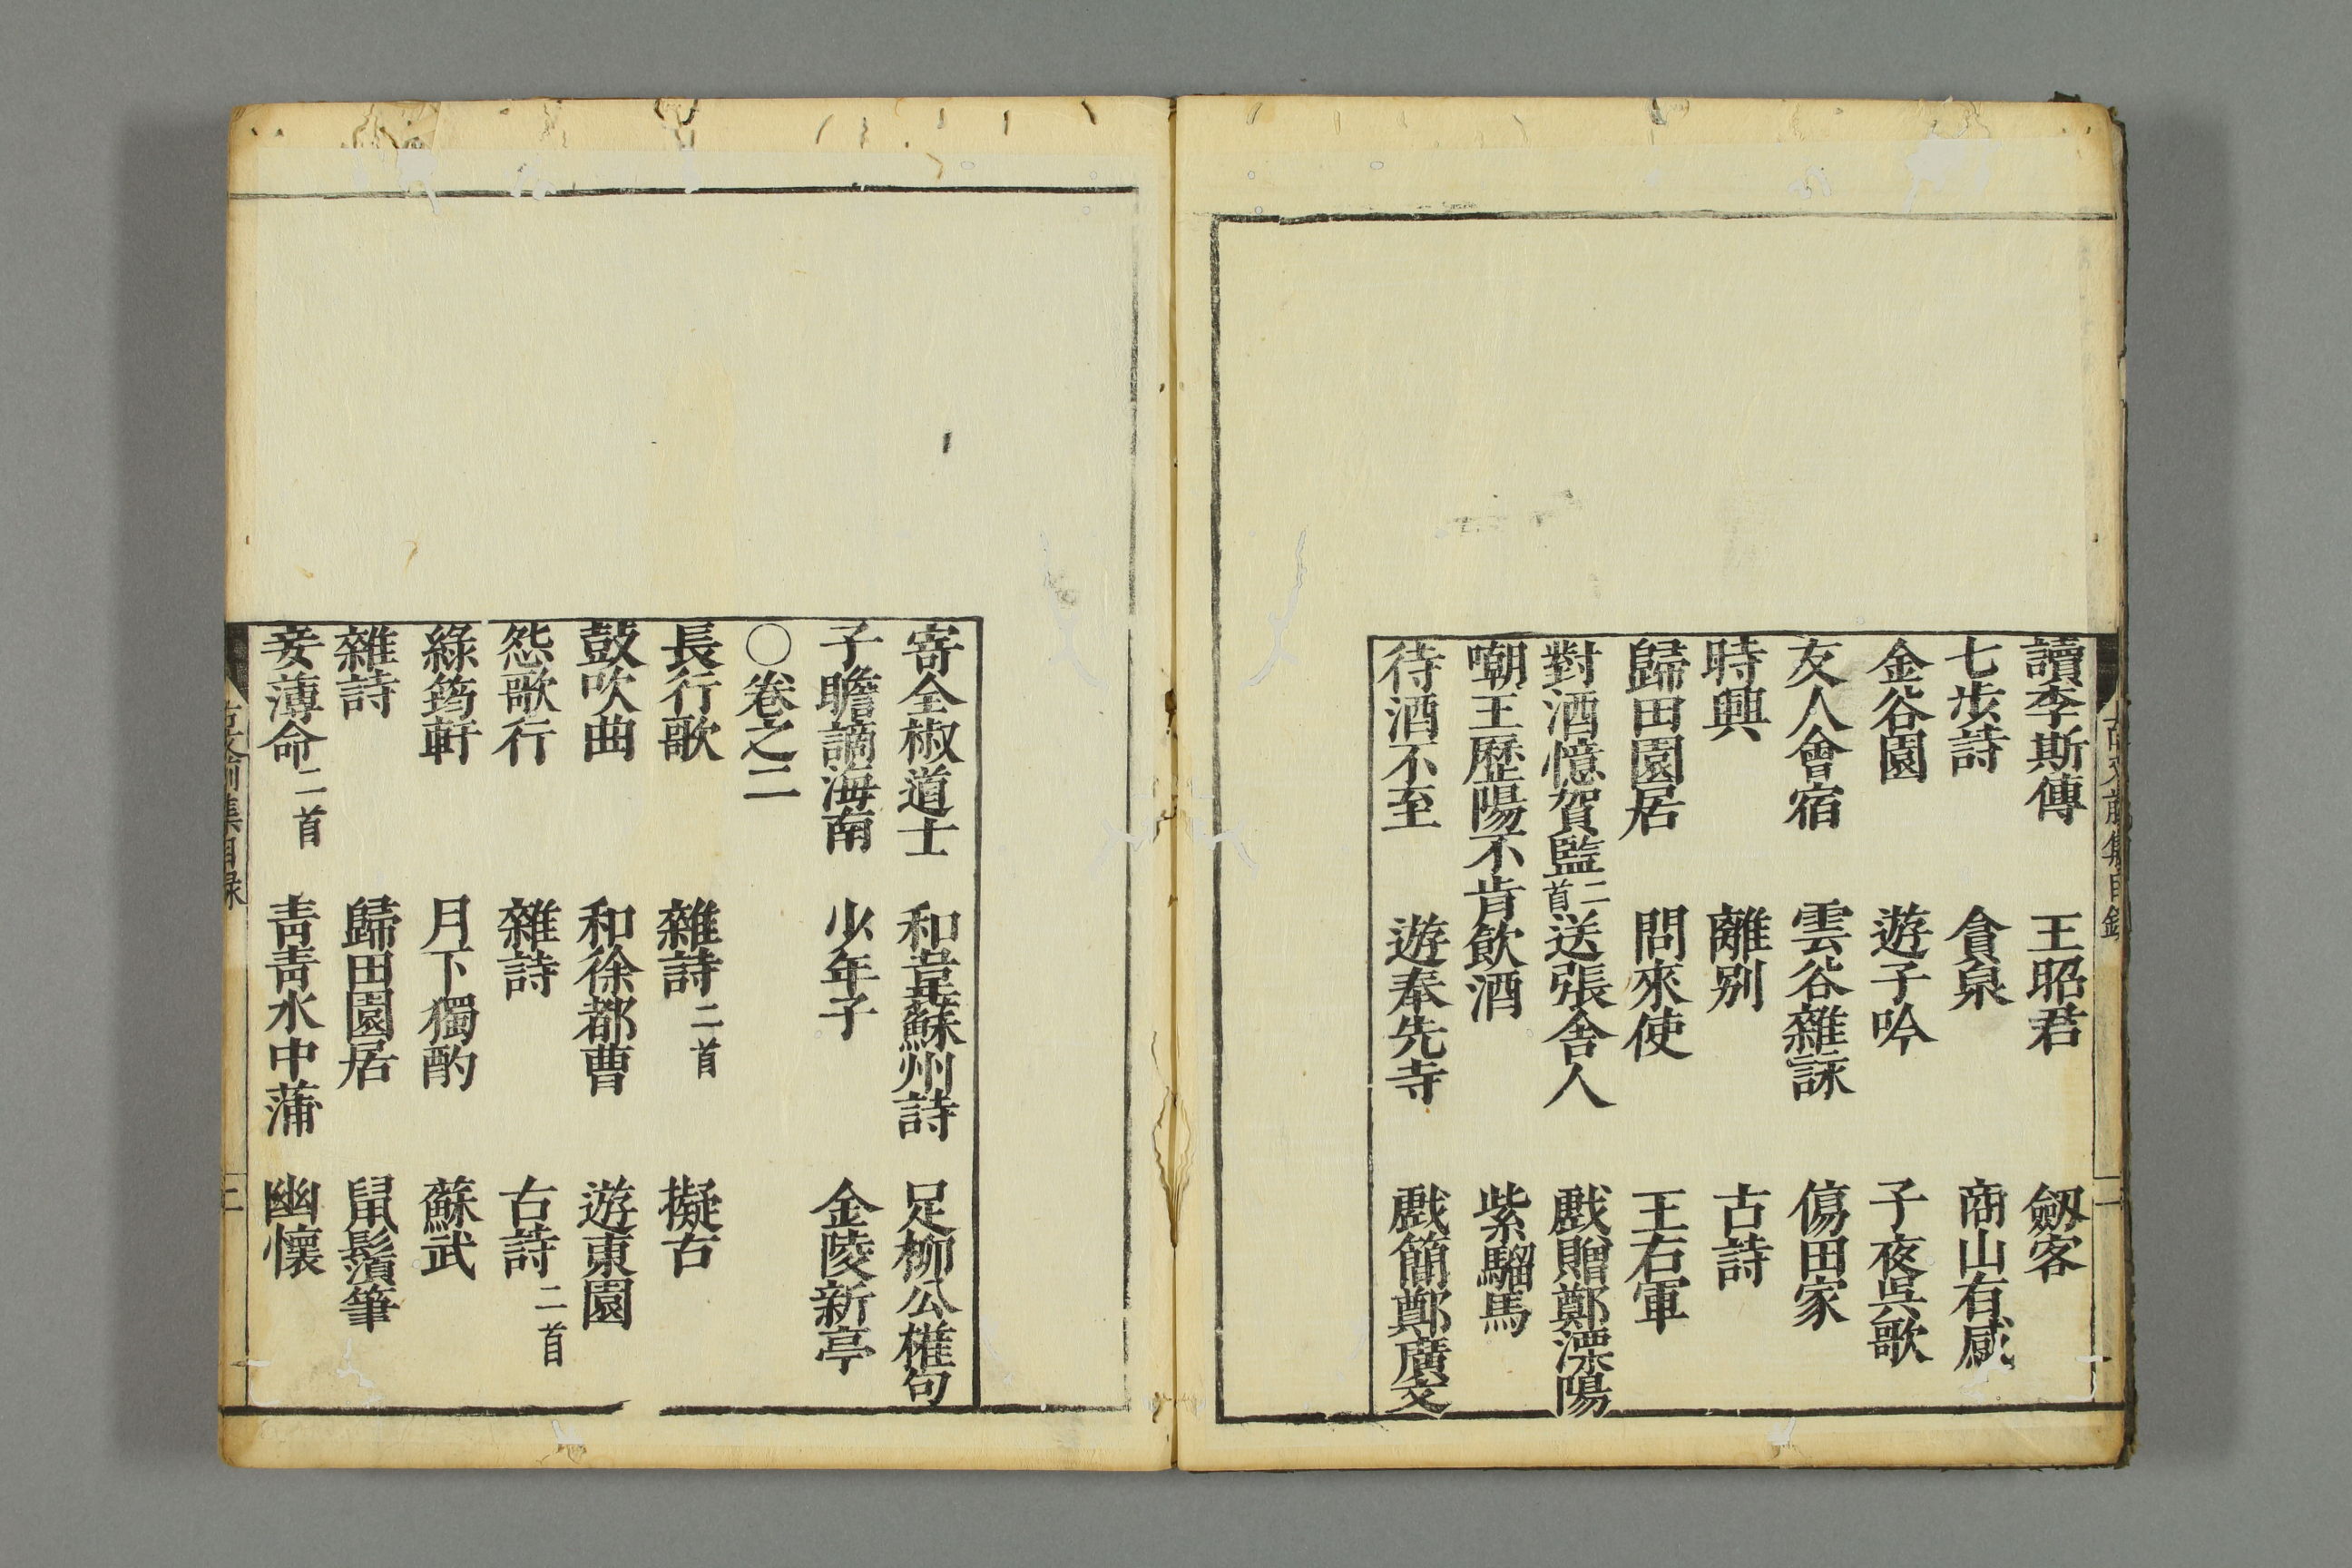 讀李斯傳　王昭君　劒客
七步詩　貪泉　商山有感
金谷園　遊子吟　子夜吳歌
友人會宿　雲谷雜詠　傷田家
時興　離別　古詩
歸田園居　問來使　王右軍
對酒憶賀監二首　送張舍人　戲贈鄭溧陽
嘲王歷陽不肯飲酒　紫騮馬
待酒不至　遊奉先寺　戲簡鄭廣文
寄全椒道士　和韋蘇州詩　足柳公權句
子瞻謫海南　少年子　金陵新亭
○卷之二
長行歌　雜詩二首　擬古
鼓吹曲　和徐都曹　遊東園
怨歌行　雜詩　古詩二首
綠筠軒　月下獨酌　蘇武
雜詩　歸田園居　鼠鬚筆
妾薄命二首　靑靑水中蒲　幽懷